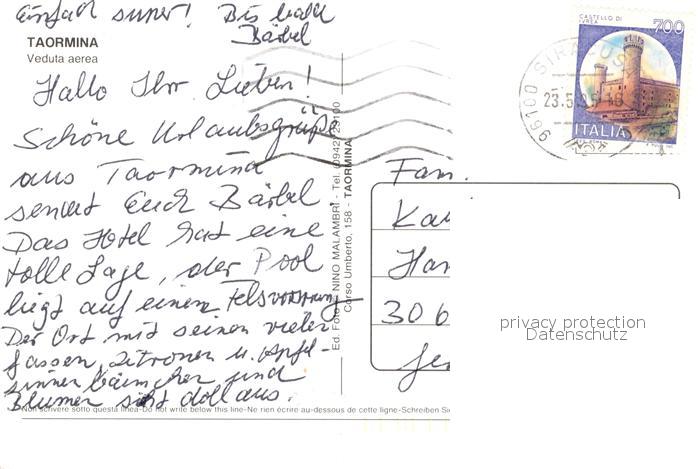 Einfach super! Bis bald
Bärbel
TAORMINA
Veduta aerea
Hallo Ihr Lieben!
Schöne Urlaubsgrüße
aus Taormina
sendet Euch Bärbel
Das Hotel hat eine
tolle Lage, der Pool
liegt auf einem Felsvorsprung
Der Ort mit seinen vielen
Gassen, Zitronen u. Apfel-
sinnenbäumchen und
Blumen sieht doll aus.
Non scrivere sotto questa linea-Do not write below this line-Ne rien écrire au-dessous de cette ligne-Schreiben Si
Ed. Foto NINO MALAMBRÌ - Tel. (0942) 29100
Corso Umberto, 158 - TAORMINA
CASTELLO DI
IVREA
700
ITALIA
96100 SIRACUSA
23.5
Fam.
Kau
Han
306
privacy protection
Datenschutz